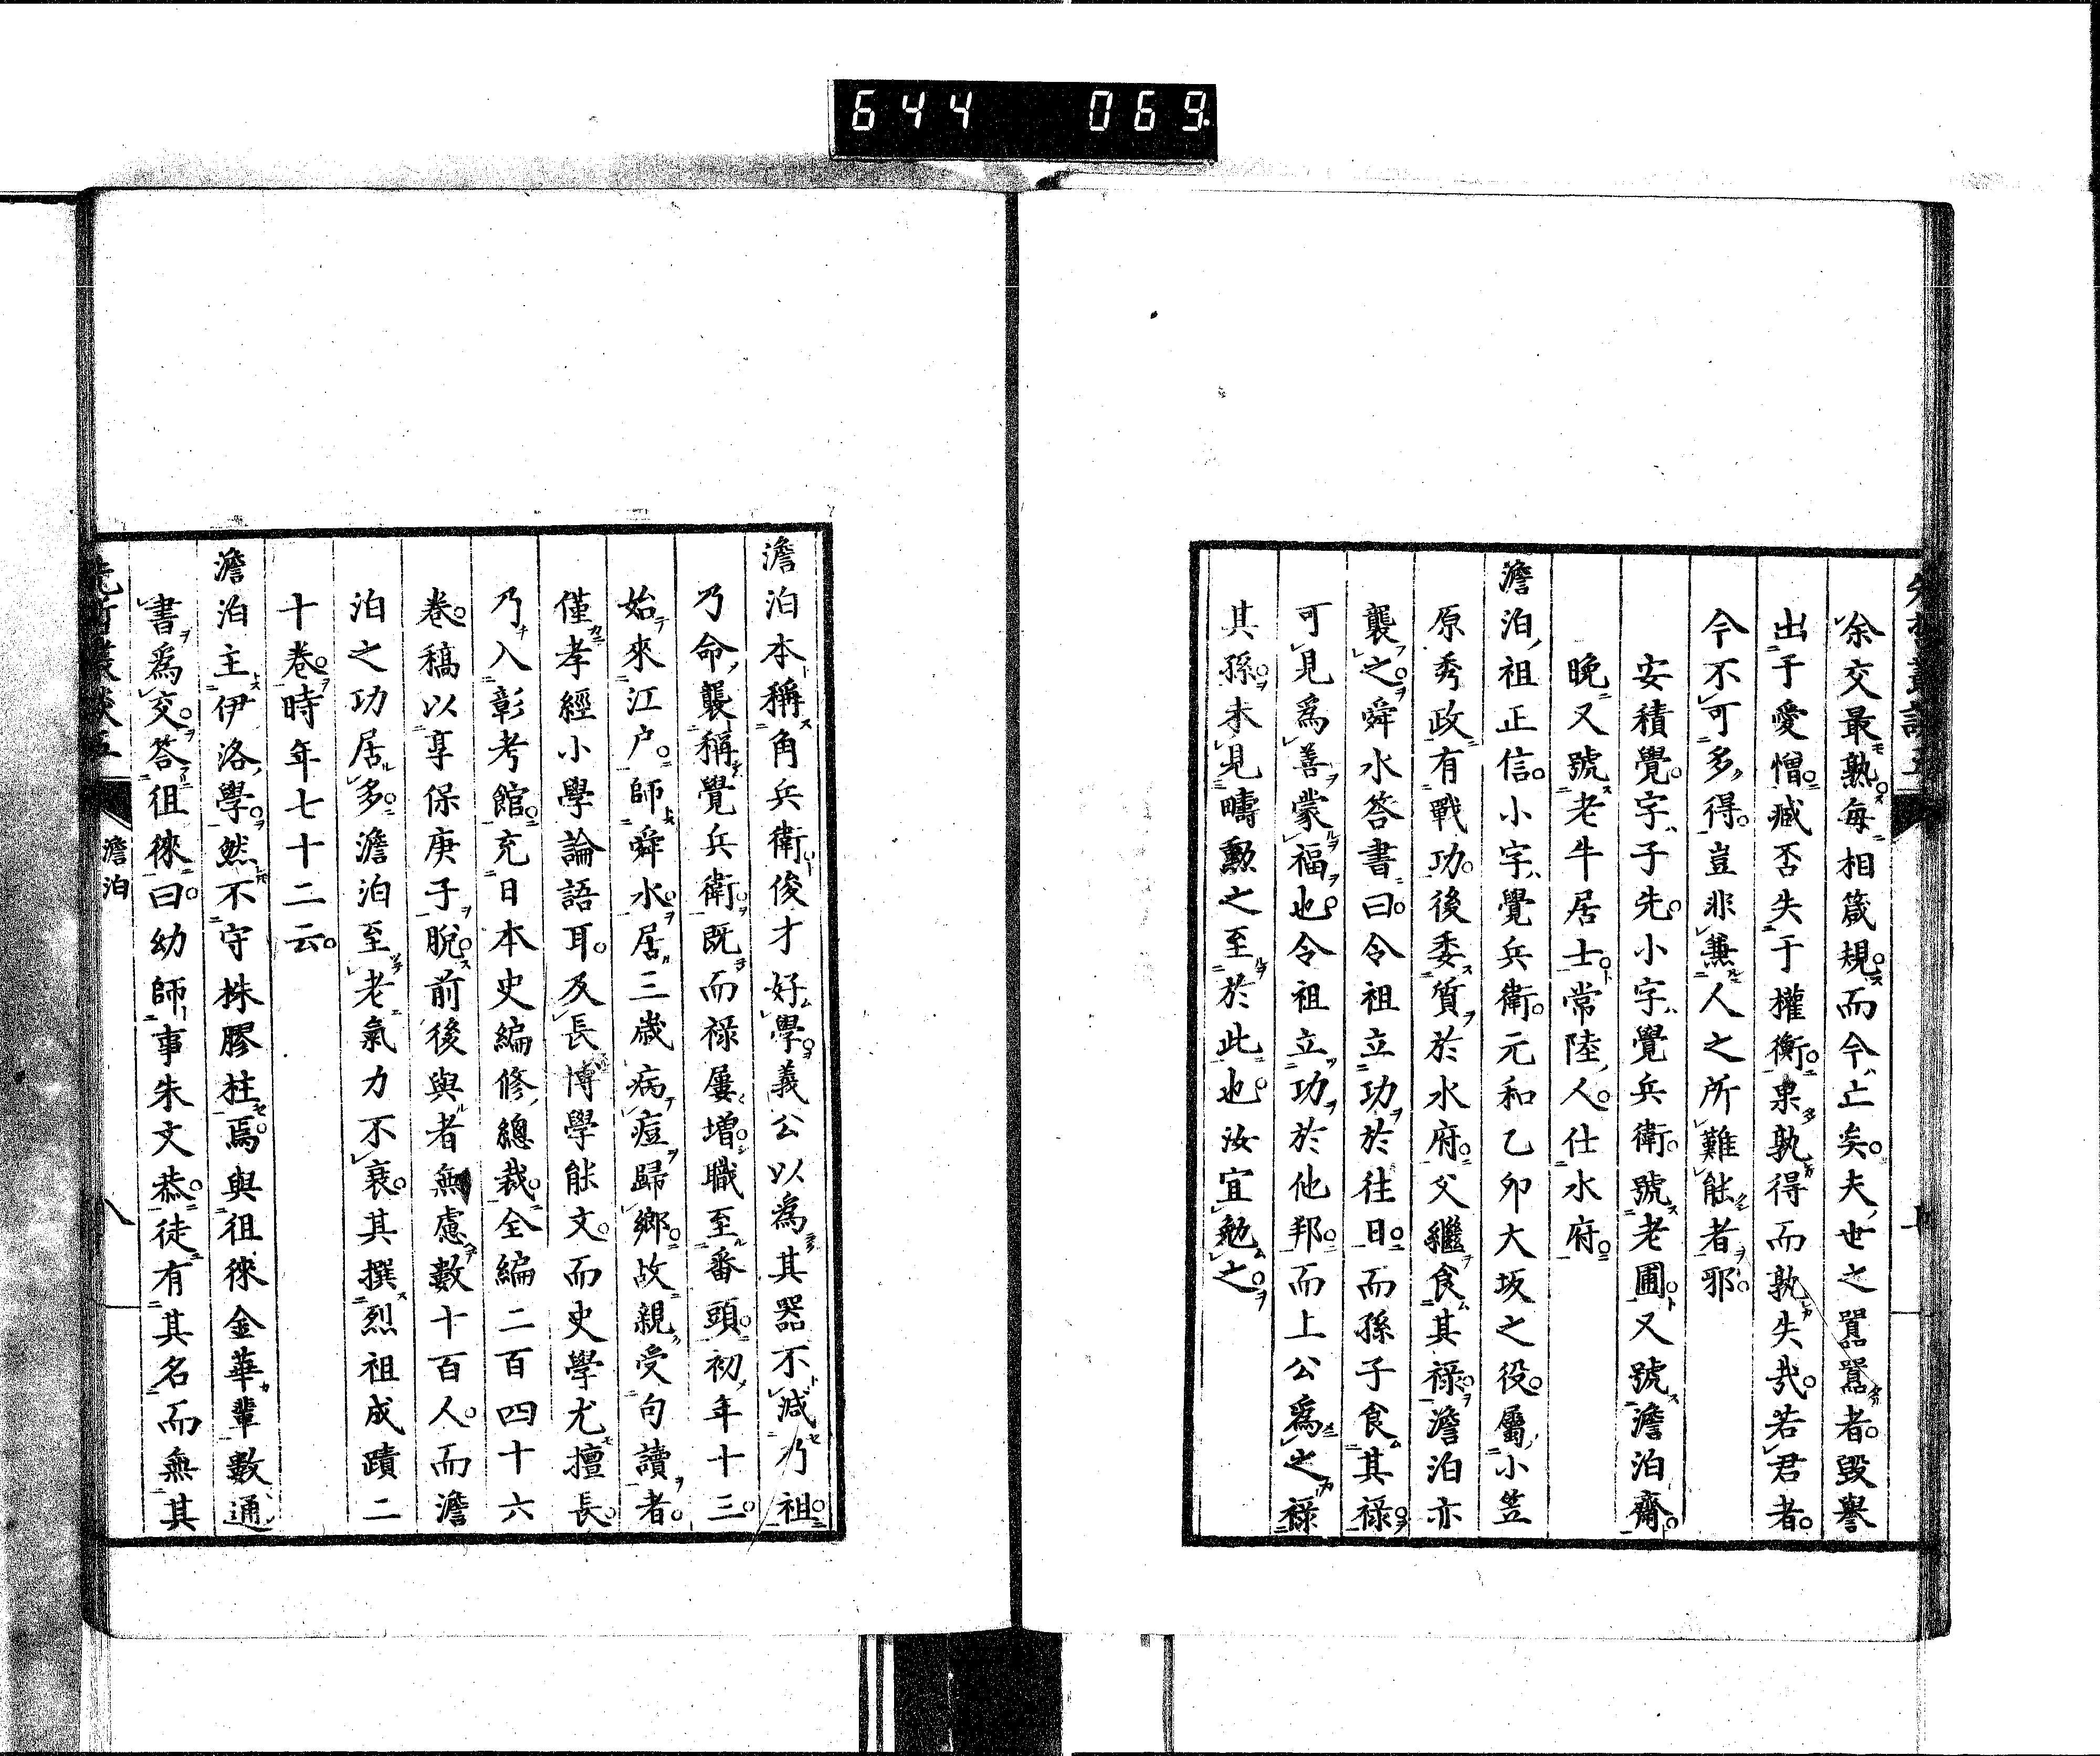 644 069
余交最熟每相箴規而今亡矣夫世之囂囂者毀譽
出于愛憎臧否失于權衡果孰得而孰失哉若君者
今不可多得豈非兼人之所難能者邪
安積覺字子先小字覺兵衛號老圃又號澹泊齋
晩又號老牛居士常陸人仕水府
澹泊祖正信小字覺兵衛元和乙卯大坂之役屬小笠
原秀政有戰功後委質於水府父繼食其祿澹泊亦
襲之舜水答書曰令祖立功於往日而孫子食其祿
可見為善蒙福也令祖立功於他邦而上公為之祿
其孫未見疇勳之至於此也汝宜勉之
澹泊本稱角兵衛俊才好學義公以為其器不減乃祖
乃命襲稱覺兵衛既而祿屢增職至番頭初年十三
始來江戶師舜水居三歲病痘歸鄉故親受句讀者
僅孝經小學論語耳及長博學能文而史學尤擅長
乃入彰考館充日本史編修總裁全編二百四十六
卷稿以享保庚子脫前後與者無慮數十百人而澹
泊之功居多澹泊至老氣力不衰其撰烈祖成蹟二
十卷時年七十二云
澹泊主伊洛學然不守株膠柱焉與徂徠金華輩數通
書為交答徂徠曰幼師事朱文恭徒有其名而無其
澹泊
八